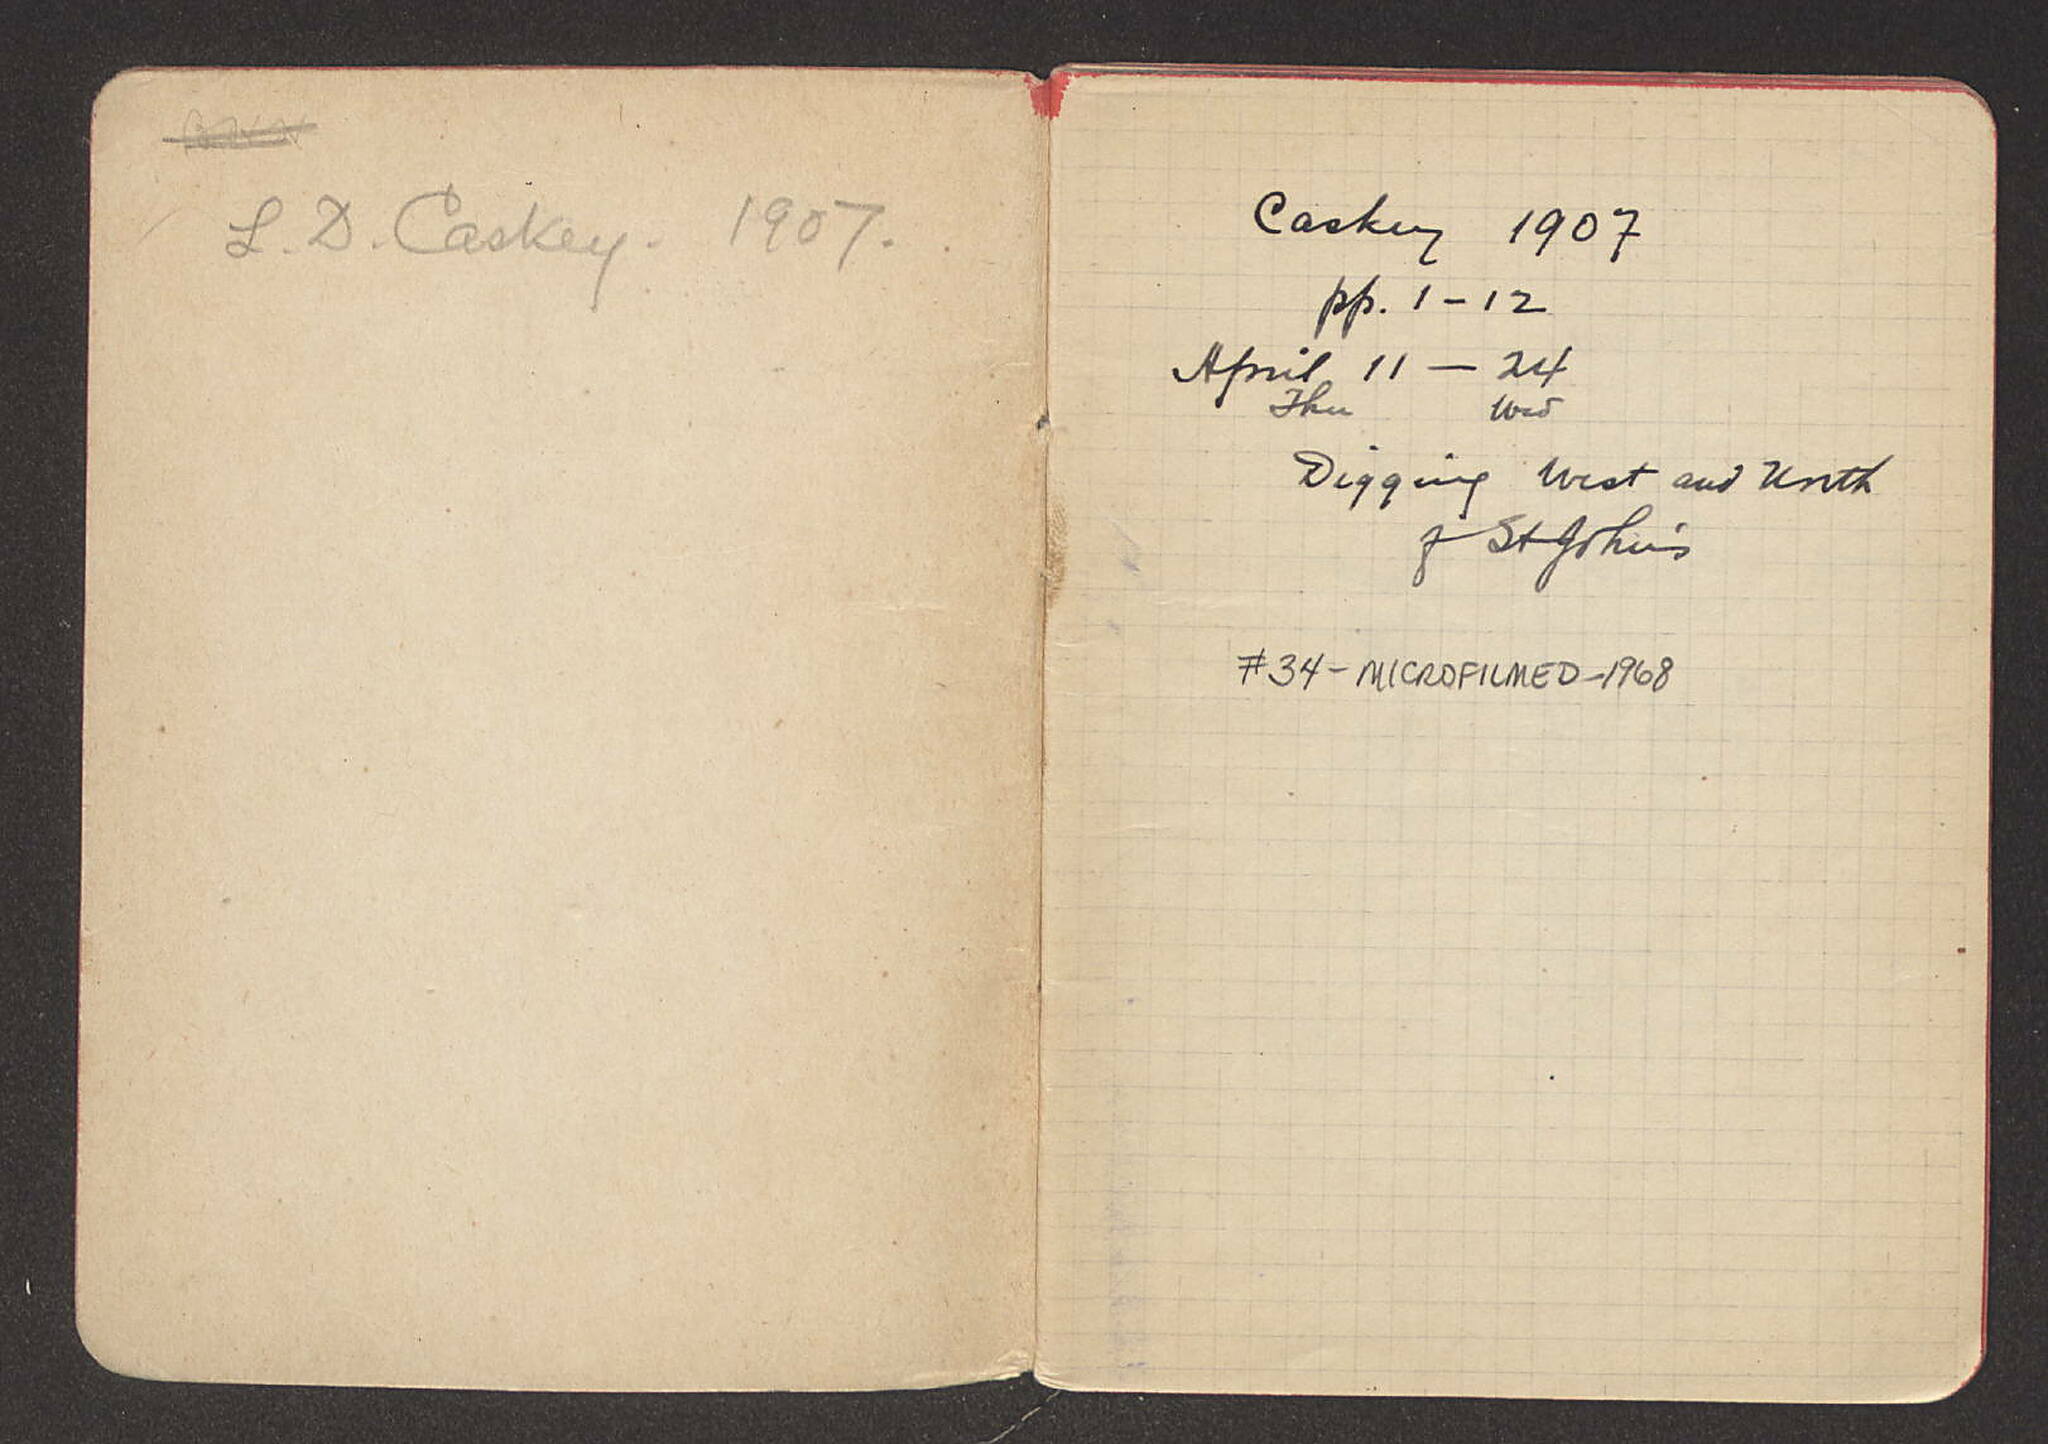 L. D. Caskey. 1907.
Caskey 1907
pp. 1 – 12
April 11 — 24
Thu Wed
Digging West and North
of St John's
#34 – MICROFILMED – 1968